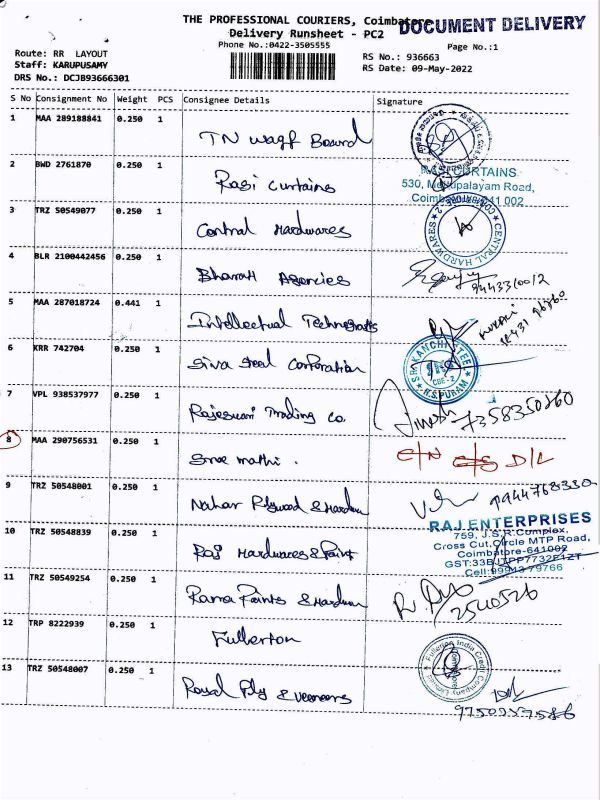 THE PROFESSIONAL COURIERS, Coimbatore
DOCUMENT DELIVERY
Delivery Runsheet - PC2
Phone No.:0422-3505555
Page No.:1
Route: RR LAYOUT
RS No.: 936663
Staff: KARUPUSAMY
RS Date: 09-May-2022
DRS No.: DCJB93666301
S No Consignment No Weight PCS Consignee Details Signature
1 MAA 289188841 0.250 1 TN Waqf Board
2 BWD 2761870 0.250 1 Rasi Curtains
RASI CURTAINS
530, Mettupalayam Road,
Coimbatore-641 002
3 TRZ 50549077 0.250 1 Central Hardwares
CENTRAL HARDWARES
4 BLR 2100442456 0.250 1 Bharath Agencies
9443310012
5 MAA 287018724 0.441 1 Intellectual Technocrats
6 KRR 742704 0.250 1 Siva Steel Corporation
SRI KANCHI STEEL
CBE-2
R.S.PURAM
7 VPL 938537977 0.250 1 Rajeswari Trading Co.
Dinesh
7358350860
8 MAA 290756531 0.250 1 Sree mathi.
C/N D/L
9 TRZ 50548001 0.250 1 Nahar Plywood & Hardware
9944768330
10 TRZ 50548839 0.250 1 Raj Hardwares & Paint
RAJ ENTERPRISES
759, J.S.R.Complex,
Cross Cut,Circle MTP Road,
Coimbatore-641002
Cell:99943 79766
11 TRZ 50549254 0.250 1 Rama Paints & Hardware
2540526
12 TRP 8222939 0.250 1 Fullerton
Fullerton India Credit Company Limited
13 TRZ 50548007 0.250 1 Royal Ply & veeneers